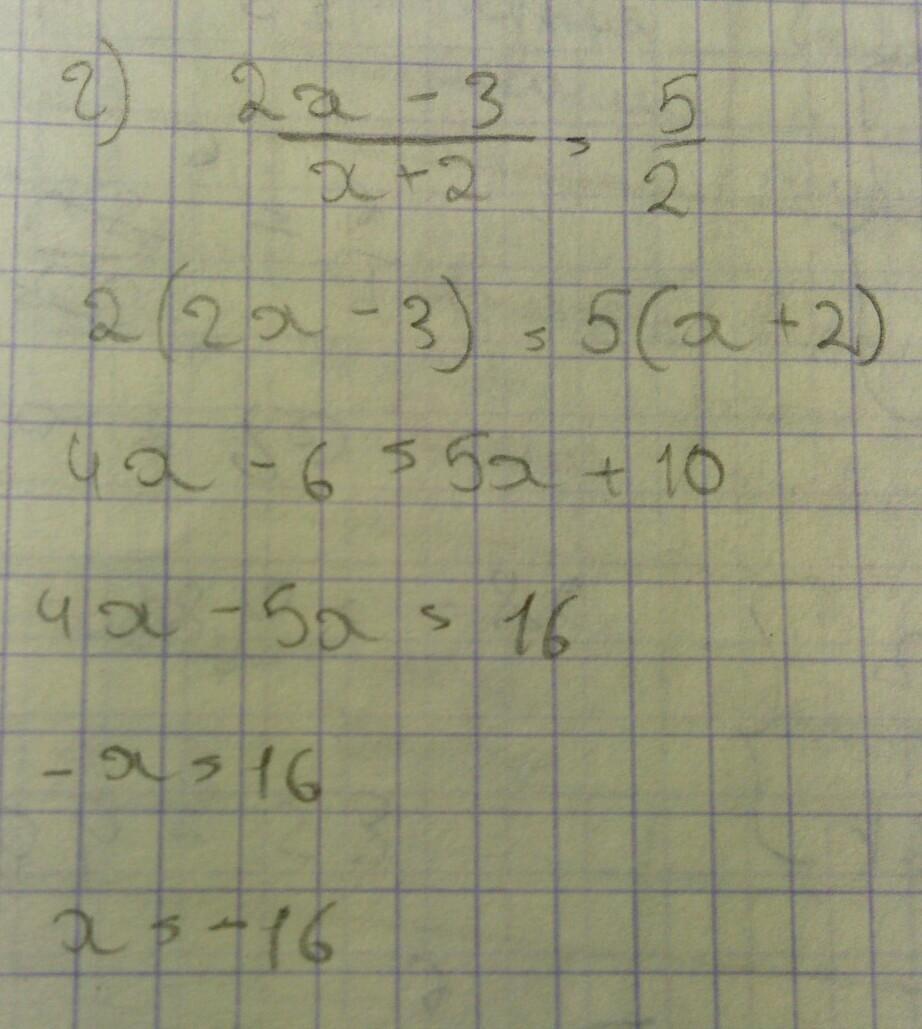 г) (2x - 3)/(x + 2) = 5/2
2(2x - 3) = 5(x + 2)
4x - 6 = 5x + 10
4x - 5x = 16
- x = 16
x = -16